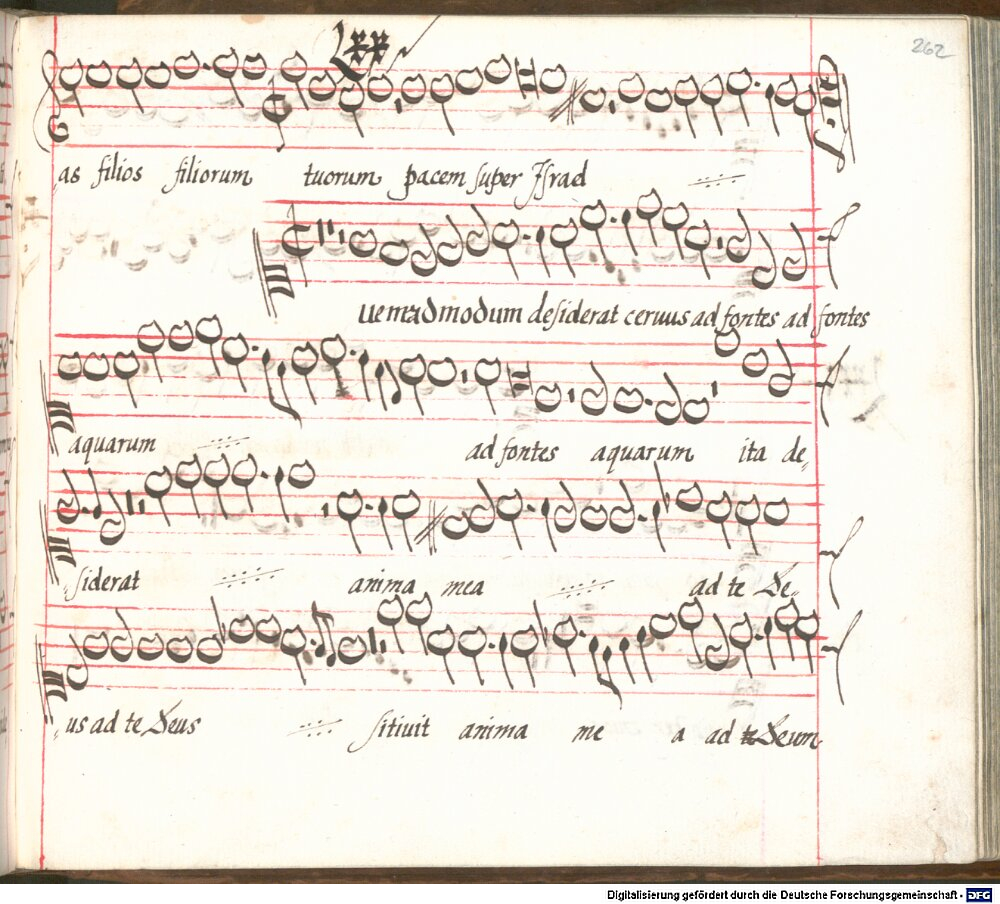 262
Lxx
as filios filiorum tuorum pacem super Jsrael
uemadmodum desiderat ceruus ad fontes ad fontes
aquarum ad fontes aquarum ita de-
siderat anima mea ad te De-
us ad te Deus sitiuit anima me a ad te Deum
Digitalisierung gefördert durch die Deutsche Forschungsgemeinschaft - DFG